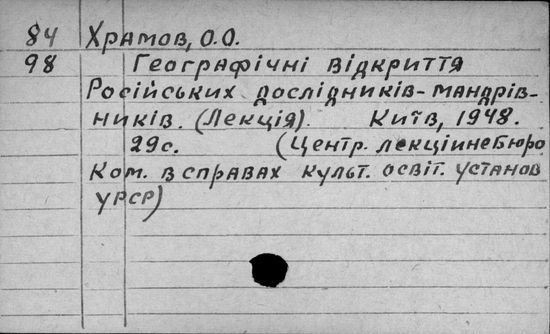 84 Храмов, О.О.
98 Географічні відкриття
Російських дослідників-мандрів-
ників. (Лекція). Київ, 1948.
29с. (Центр. лекціине Бюро
Ком. в справах культ. освіт. установ
УРСР)